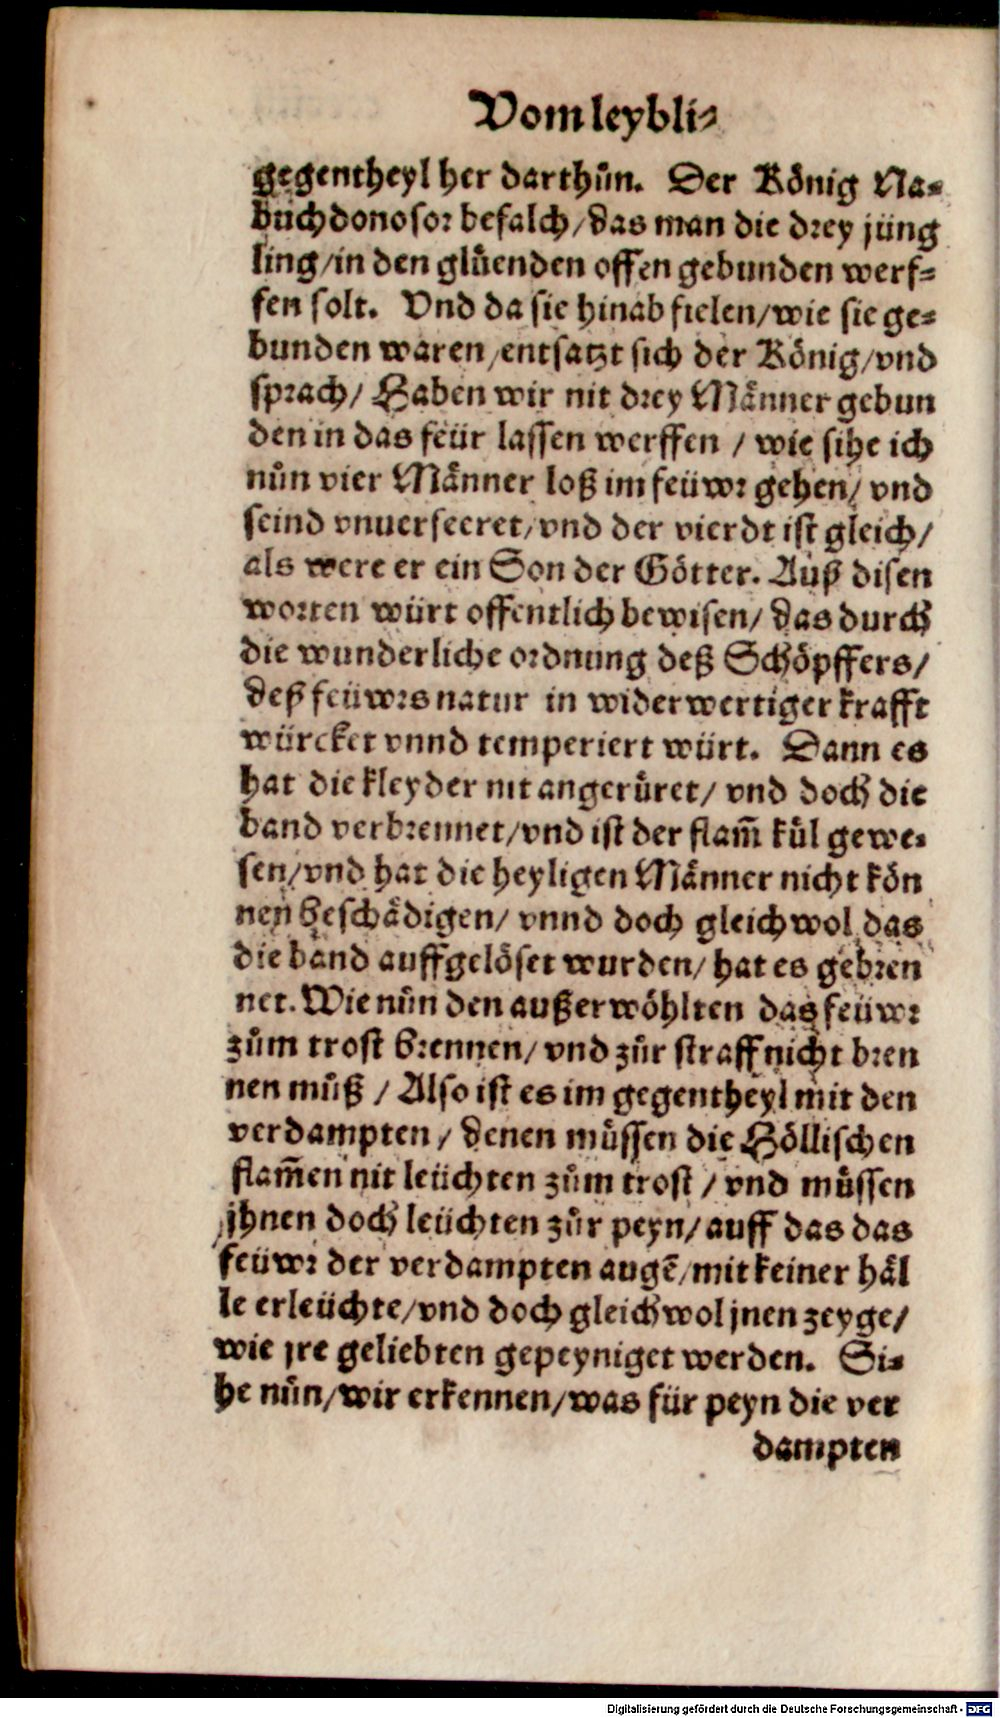 Vom leybli⸗
gegentheyl her darthůn. Der König Na⸗
buchdonosor befalch/das man die drey jüng
ling/in den glüenden offen gebunden werf⸗
fen solt. Vnd da sie hinab fielen/wie sie ge⸗
bunden waren/entsatzt sich der König/vnd
sprach/ Haben wir nit drey Männer gebun
den in das feür lassen werffen / wie sihe ich
nůn vier Männer loß im feüwr gehen/ vnd
seind vnuerseeret/vnd der vierdt ist gleich/
als were er ein Son der Götter. Auß disen
worten würt offentlich bewisen/ das durch
die wunderliche ordnung deß Schöpffers/
deß feüwrs natur in widerwertiger krafft
würcket vnnd temperiert würt. Dann es
hat die kleyder nit angerüret/ vnd doch die
band verbrennet/vnd ist der flam̃ kül gewe⸗
sen/vnd hat die heyligen Männer nicht kön
nen beschädigen/ vnnd doch gleichwol das
die band auffgelöset wurden/ hat es gebren
net. Wie nůn den außerwöhlten das feüwr
zům trost brennen/ vnd zůr straff nicht bren
nen můß / Also ist es im gegentheyl mit den
verdampten / denen müssen die Höllischen
flam̃en nit leüchten zům trost / vnd müssen
jhnen doch leüchten zůr peyn/ auff das das
feüwr der verdampten augẽ/mit keiner häl
le erleüchte/vnd doch gleichwol jnen zeyge/
wie jre geliebten gepeyniget werden. Si⸗
he nůn/wir erkennen/was für peyn die ver
dampten
Digitalisierung gefördert durch die Deutsche Forschungsgemeinschaft - DFG